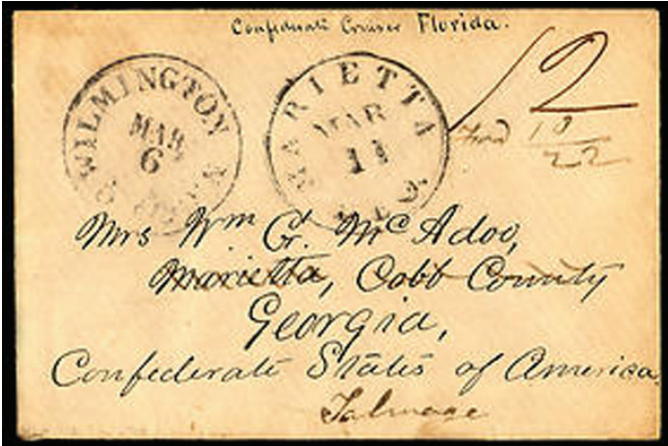 Confederate Cruiser Florida.
WILMINGTON N
MAR
6
MARIETTA
MAR
11
12
Ford 10
22
Mrs Wm G. McAdoo,
Marietta, Cobb County
Georgia,
Confederate States of America.
Talmage